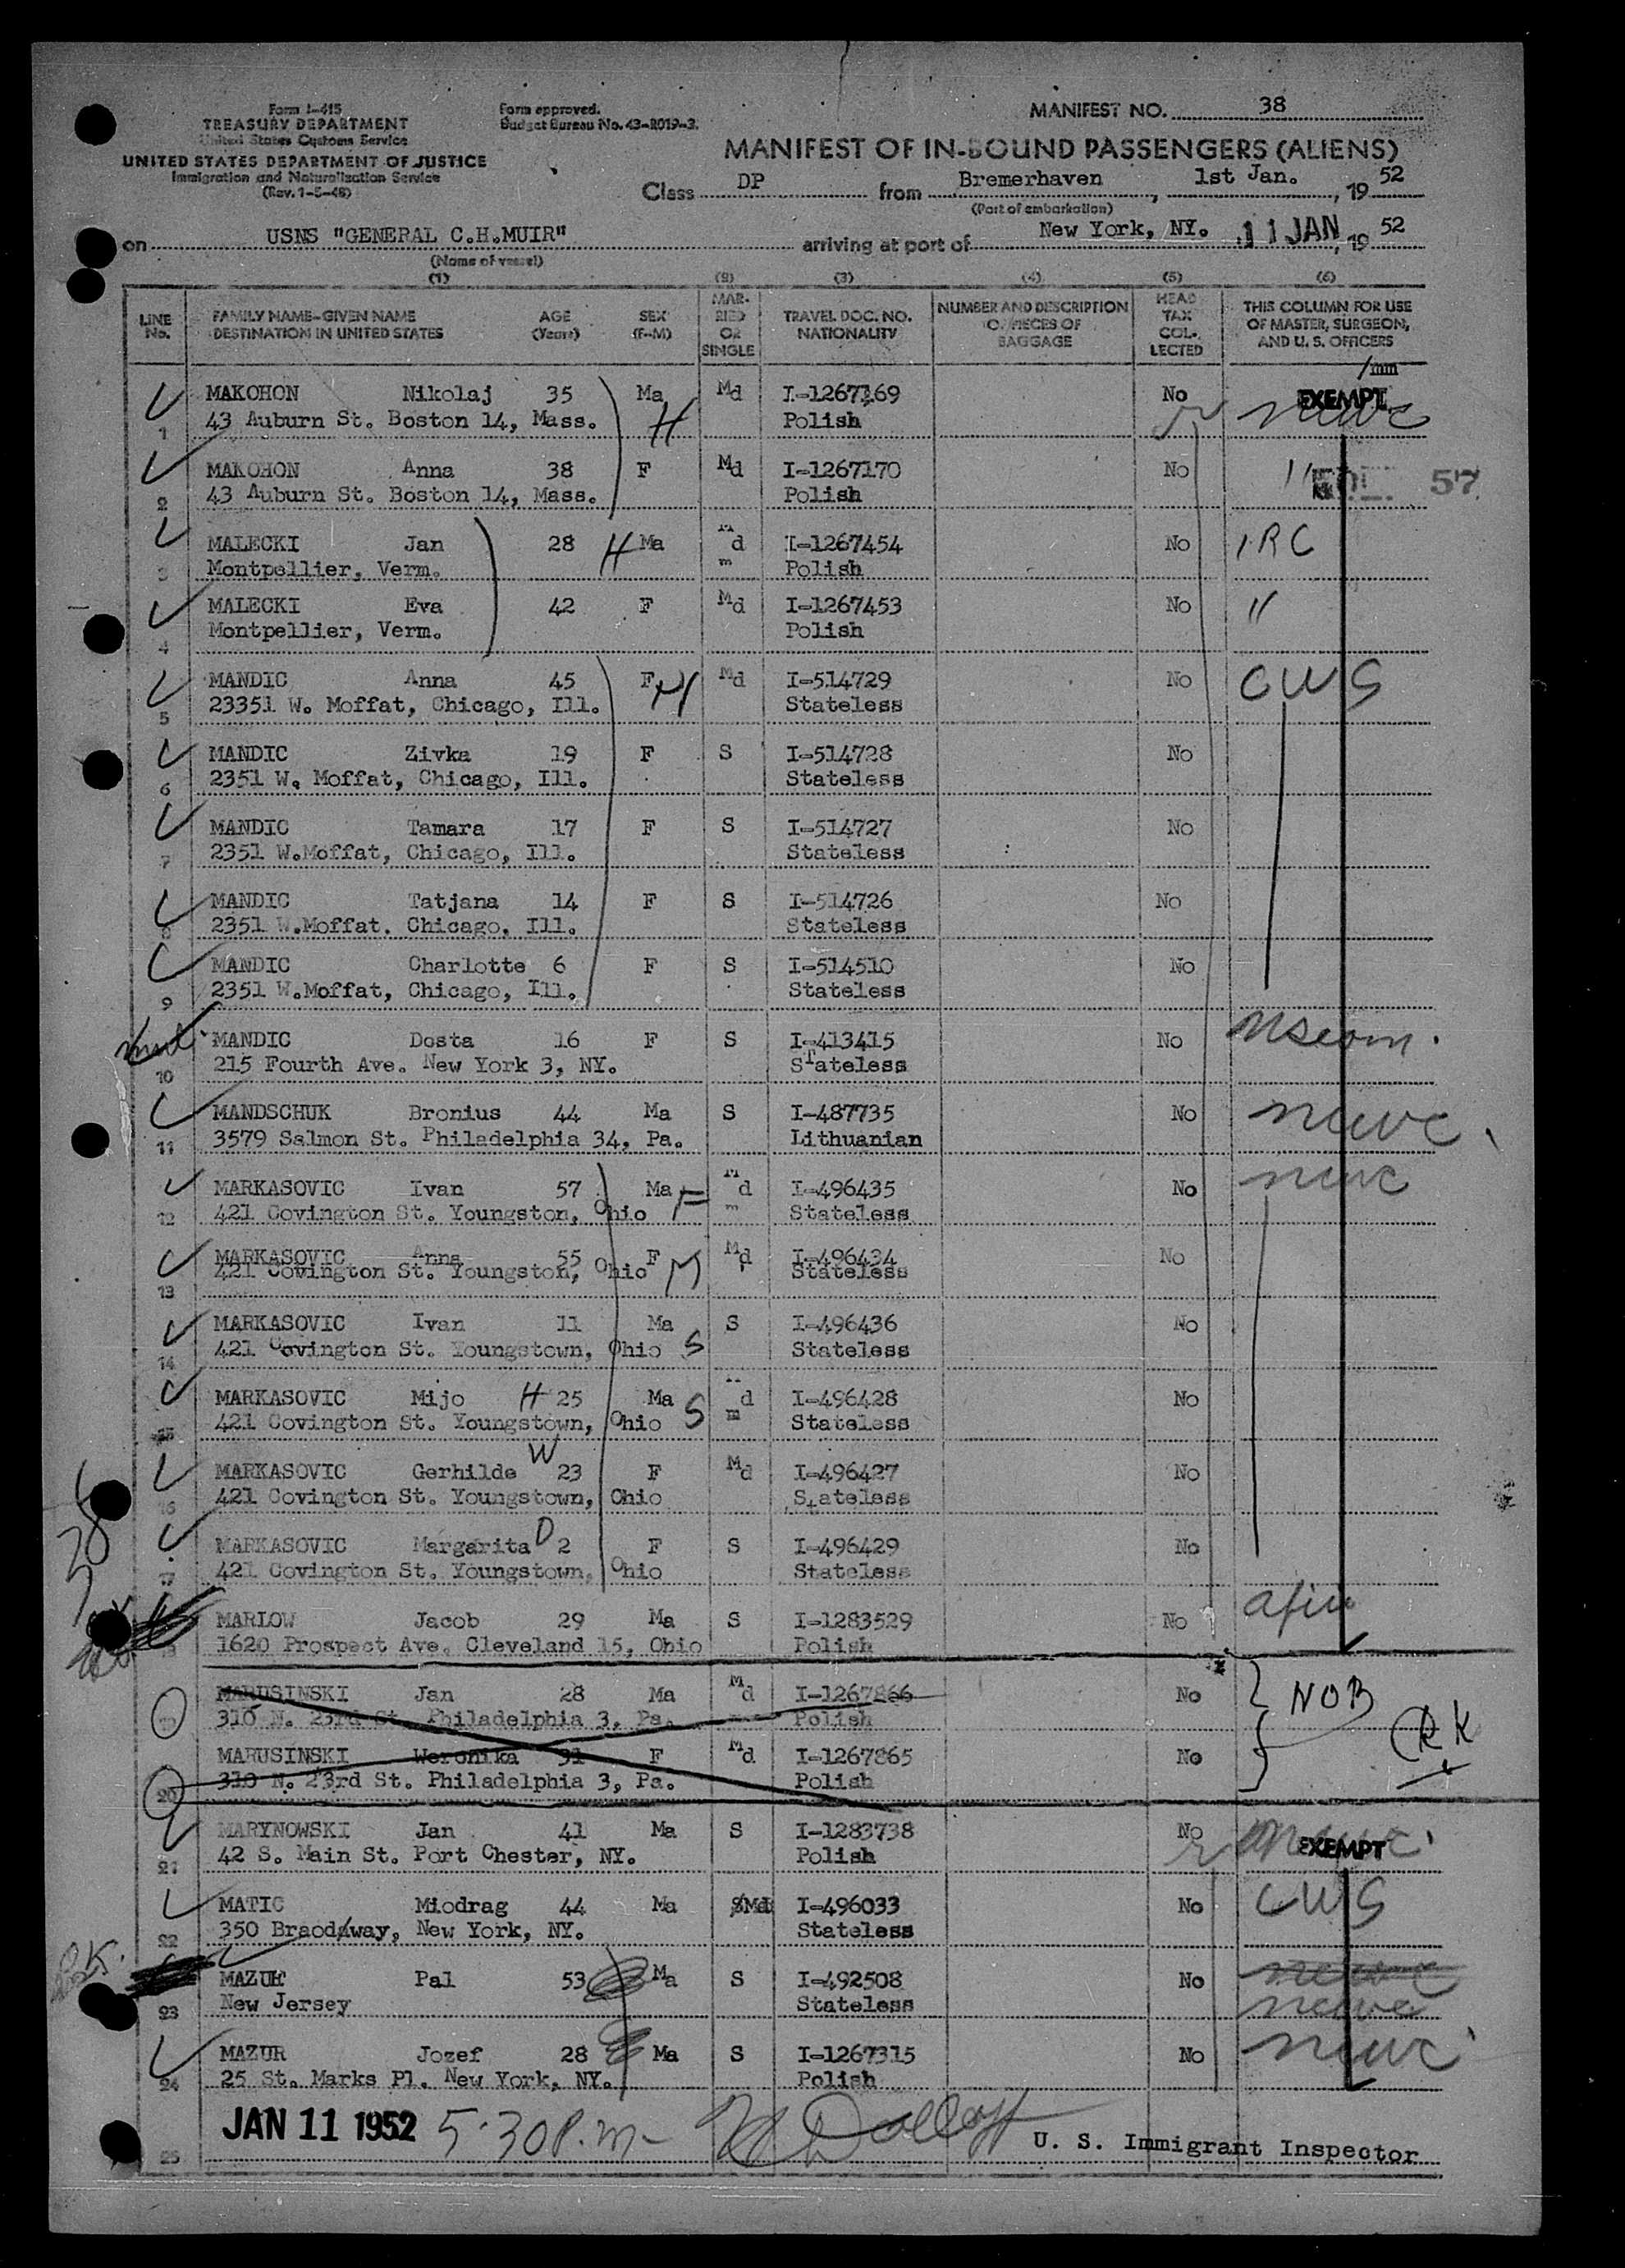 Form I-415
TREASURY DEPARTMENT
United States Customs Service
UNITED STATES DEPARTMENT OF JUSTICE
Immigration and Naturalization Service
(Rev. 1-5-48)
Form approved.
Budget Bureau No. 43-R019-3.
MANIFEST NO. 38
MANIFEST OF IN-BOUND PASSENGERS (ALIENS)
Class DP from Bremerhaven, 1st Jan., 19 52
(Port of embarkation)
on USNS "GENERAL C.H.MUIR" arriving at port of New York, NY. 11 JAN, 19 52
(Name of vessel)
(1) (2) (3) (4) (5) (6)
LINE No. FAMILY NAME-GIVEN NAME DESTINATION IN UNITED STATES AGE (Years) SEX (F-M) MARRIED OR SINGLE TRAVEL DOC. NO. NATIONALITY NUMBER AND DESCRIPTION OF PIECES OF BAGGAGE HEAD TAX COL-LECTED THIS COLUMN FOR USE OF MASTER, SURGEON, AND U. S. OFFICERS
MAKOHON Nikolaj 35 Ma H Md I-1267169 No EXEMPT
1 43 Auburn St. Boston 14, Mass. Polish
MAKOHON Anna 38 F Md I-1267170 No 11 57
2 43 Auburn St. Boston 14, Mass. Polish
MALECKI Jan 28 H Ma Md I-1267454 No IRC
3 Montpellier, Verm. Polish
MALECKI Eva 42 F Md I-1267453 No 11
4 Montpellier, Verm. Polish
MANDIC Anna 45 F Md I-514729 No CWS
5 23351 W. Moffat, Chicago, Ill. Stateless
MANDIC Zivka 19 F S I-514728 No
6 2351 W. Moffat, Chicago, Ill. Stateless
MANDIC Tamara 17 F S I-514727 No
7 2351 W.Moffat, Chicago, Ill. Stateless
MANDIC Tatjana 14 F S I-514726 No
8 2351 W.Moffat. Chicago, Ill. Stateless
MANDIC Charlotte 6 F S I-514510 No
9 2351 W.Moffat, Chicago, Ill. Stateless
MANDIC Dosta 16 F S I-413415 No
10 215 Fourth Ave. New York 3, NY. STateless
MANDSCHUK Bronius 44 Ma S I-487735 No
11 3579 Salmon St. Philadelphia 34, Pa. Lithuanian
MARKASOVIC Ivan 57 Ma F Md I-496435 No
12 421 Covington St. Youngston, Ohio Stateless
MARKASOVIC Anna 55 F M Md I-496434 No
13 421 Covington St. Youngston, Ohio Stateless
MARKASOVIC Ivan 11 Ma S I-496436 No
14 421 Covington St. Youngstown, Ohio S Stateless
MARKASOVIC Mijo H 25 Ma Md I-496428 No
15 421 Covington St. Youngstown, Ohio S Stateless
MARKASOVIC Gerhilde W 23 F Md I-496427 No
16 421 Covington St. Youngstown, Ohio Stateless
MARKASOVIC Margarita D 2 F S I-496429 No
17 421 Covington St. Youngstown, Ohio Stateless
MARLOW Jacob 29 Ma S I-1283529 No
18 1620 Prospect Ave. Cleveland 15, Ohio Polish
MARUSINSKI Jan 28 Ma Md I-1267866 No NOB
19 310 N. 23rd St. Philadelphia 3, Pa. Polish RK
MARUSINSKI Weronika 31 F Md I-1267865 No
20 310 N. 23rd St. Philadelphia 3, Pa. Polish
MARYNOWSKI Jan 41 Ma S I-1283738 No EXEMPT
21 42 S. Main St. Port Chester, NY. Polish
MATIC Miodrag 44 Ma SMd I-496033 No CWS
22 350 Braodway, New York, NY. Stateless
MAZUR Pal 53 Ma S I-492508 No
23 New Jersey Stateless
MAZUR Jozef 28 Ma S I-1267315 No
24 25 St. Marks Pl. New York, NY. Polish
JAN 11 1952 5:30 P.m.
25 U. S. Immigrant Inspector